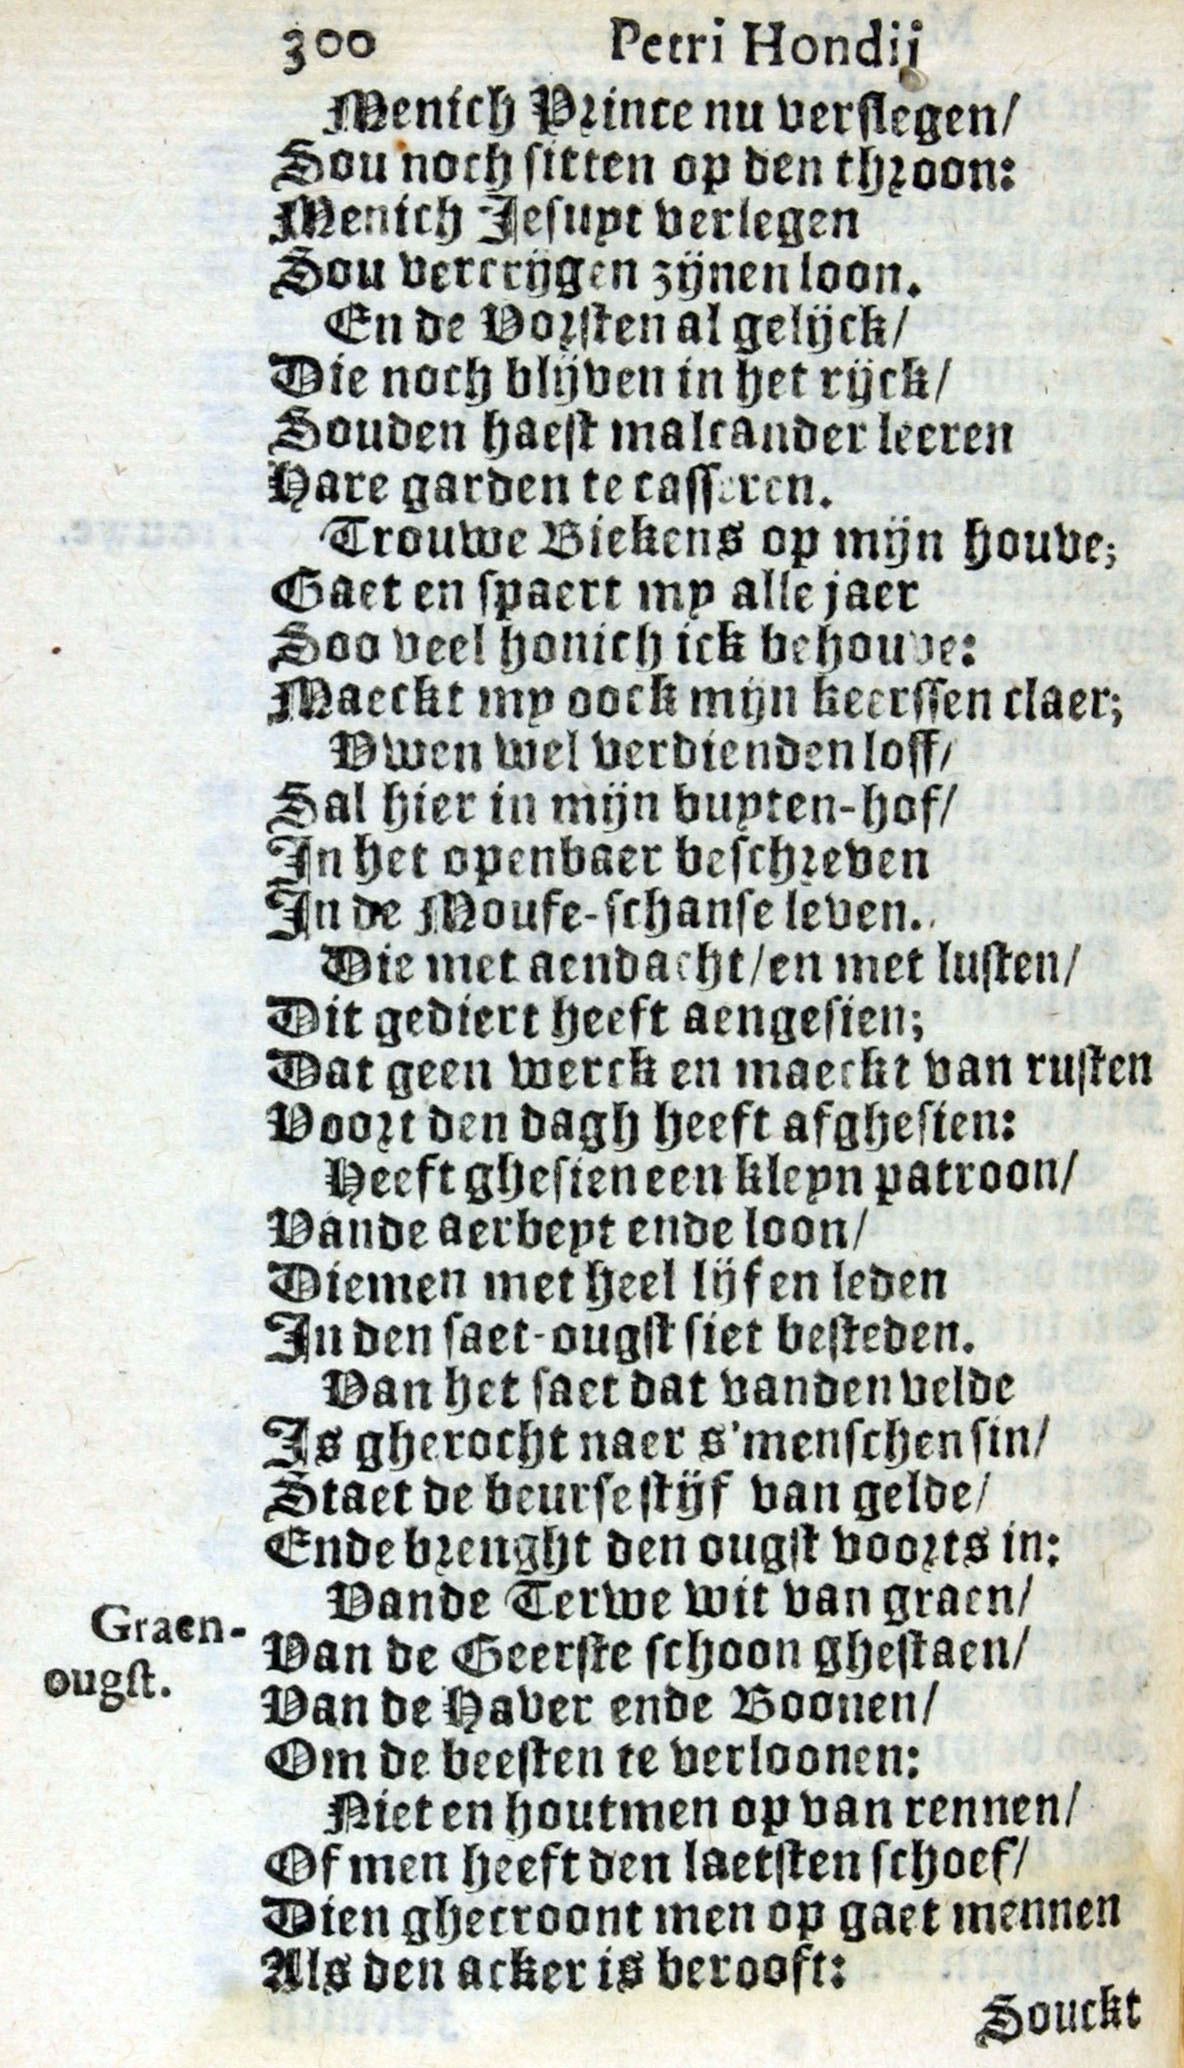 300 Petri Hondij
Menich Prince nu verslegen/
Sou noch sitten op den throon:
Menich Jesuyt verlegen
Sou vercrijgen zijnen loon.
En de Vorsten al gelijck/
Die noch blijven in het rijck/
Souden haest malcander leeren
Hare garden te casseren.
Trouwe Biekens op mijn houve;
Gaet en spaert my alle jaer
Soo veel honich ick behouve:
Maeckt my oock mijn keerssen claer;
Vwen wel verdienden loff/
Sal hier in mijn buyten-hof/
In het openbaer beschreven
In de Moufe-schanse leven.
Die met aendacht/en met lusten/
Dit gediert heeft aengesien;
Dat geen werck en maeckt van rusten
Voort den dagh heeft afghesien:
Heeft ghesien een kleyn patroon/
Vande aerbeyt ende loon/
Diemen met heel lijf en leden
In den saet-ougst siet besteden.
Van het saet dat vanden velde
Is gherocht naer s'menschen sin/
Staet de beurse stijf van gelde/
Ende brenght den ougst voorts in:
Vande Terwe wit van graen/
Graen-
ougst.
Van de Geerste schoon ghestaen/
Van de Haver ende Boonen/
Om de beesten te verloonen:
Niet en houtmen op van rennen/
Of men heeft den laetsten schoef/
Dien ghecroont men op gaet mennen
Als den acker is berooft:
Souckt